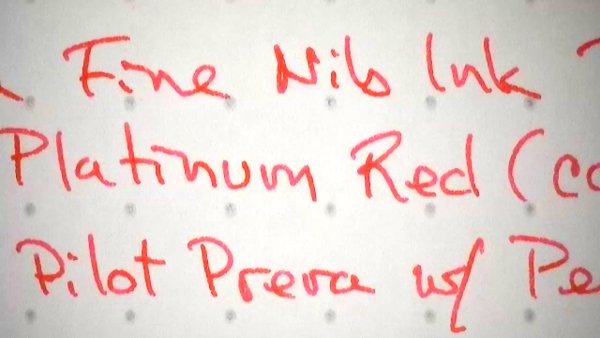 Fine Nib Ink
Platinum Red (co
Pilot Prera w/ Pe